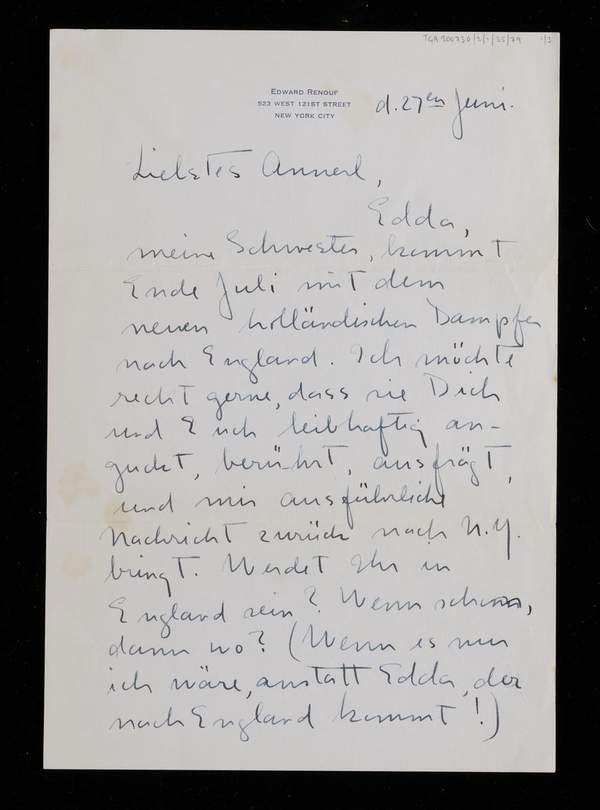 TGA 200730/2/1/35/79 1/3
EDWARD RENOUF
523 WEST 121ST STREET
NEW YORK CITY
d. 27en Juni.
Liebstes Annerl,
Edda,
meine Schwester, kommt
Ende Juli mit dem
neuen holländischen Dampfer
nach England. Ich möchte
recht gerne, dass sie Dich
und Euch leibhaftig an-
guckt, berührt, ausfrägt,
und mir ausführliche
Nachricht zurück nach N.Y.
bringt. Werdet Ihr in
England sein? Wenn schon,
dann wo? (Wenn es nur
ich wäre, anstatt Edda, der
nach England kommt!)